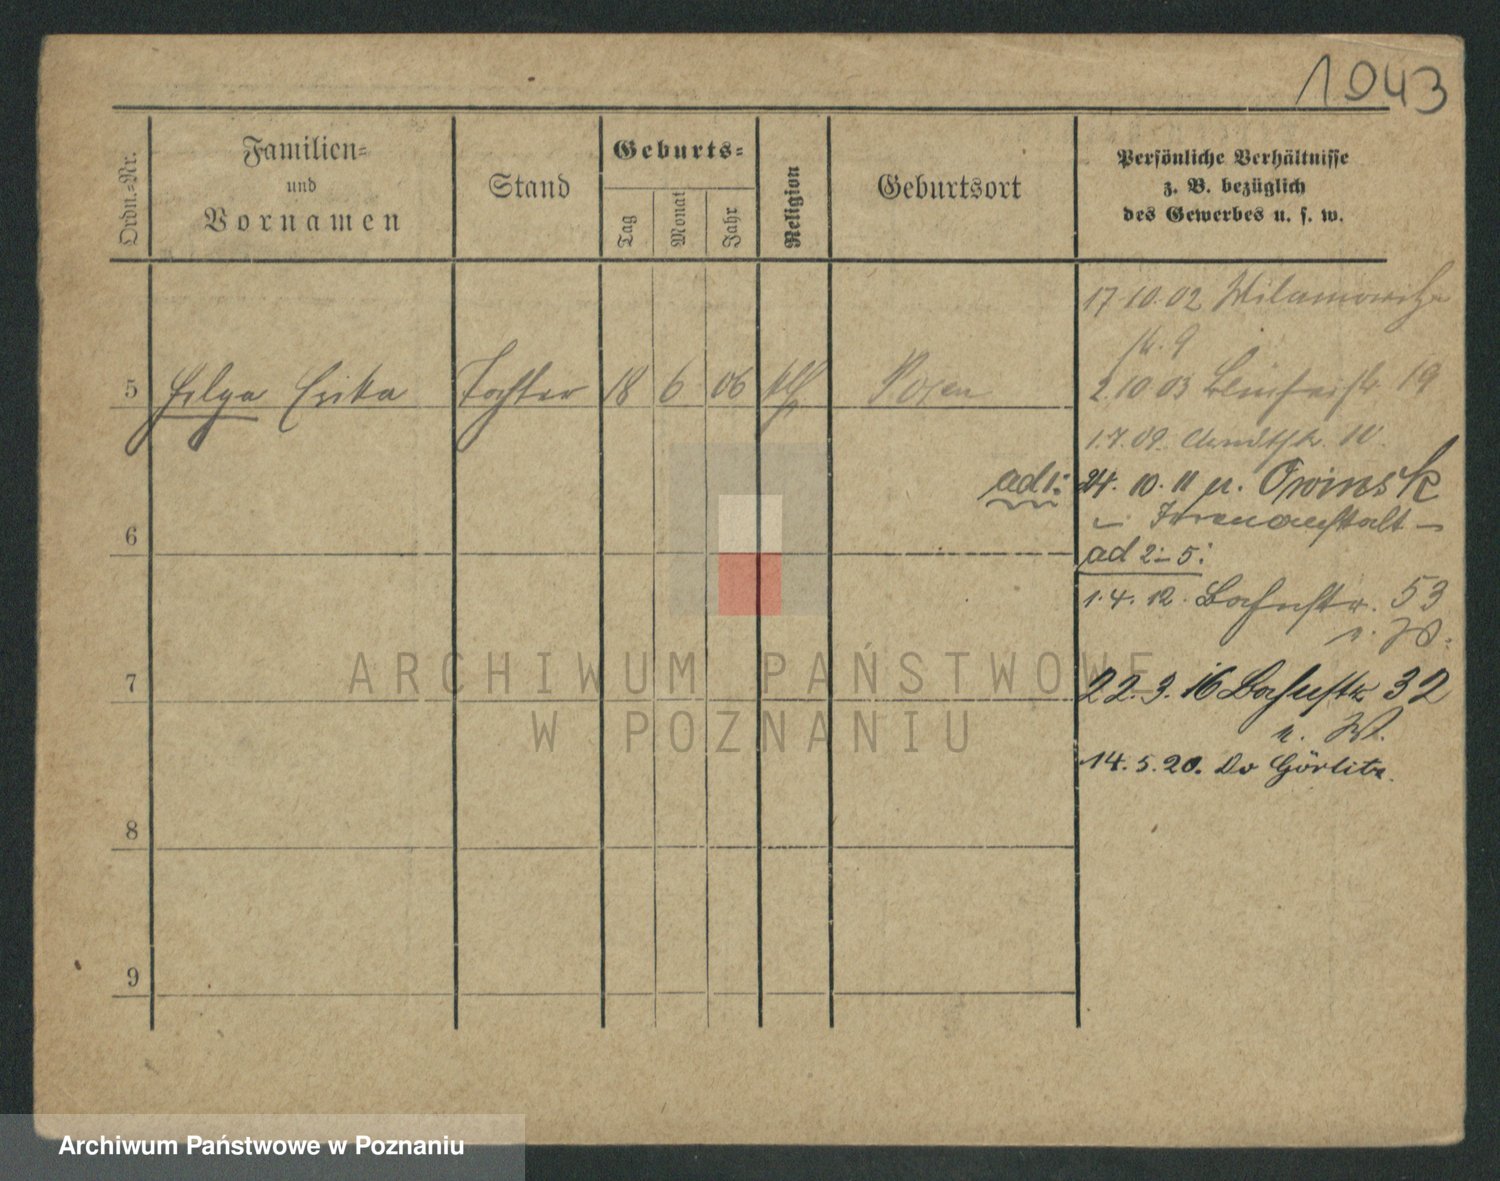 1943
Ordn.-Nr.
Familien-
und
Vornamen
Stand
Geburts-
Tag
Monat
Jahr
Religion
Geburtsort
Persönliche Verhältnisse
z. B. bezüglich
des Gewerbes u. s. w.
17 10. 02 Wilamowitz
str. 9
5 Helga Erika Tochter 18 6 06 Posen
2. 10 03 19
1. 7. 09. Arndtstr. 10.
ad 1: 24. 10. 11 n. Owinsk
– Irrenanstalt –
6
ad 2–5:
1. 4. 12. Bahnstr. 53
n. W.
7
22. 3. 16 Bahnstr. 32
n. W.
14. 5. 20. Do Görlitz.
8
9
ARCHIWUM PAŃSTWOWE
W POZNANIU
Archiwum Państwowe w Poznaniu